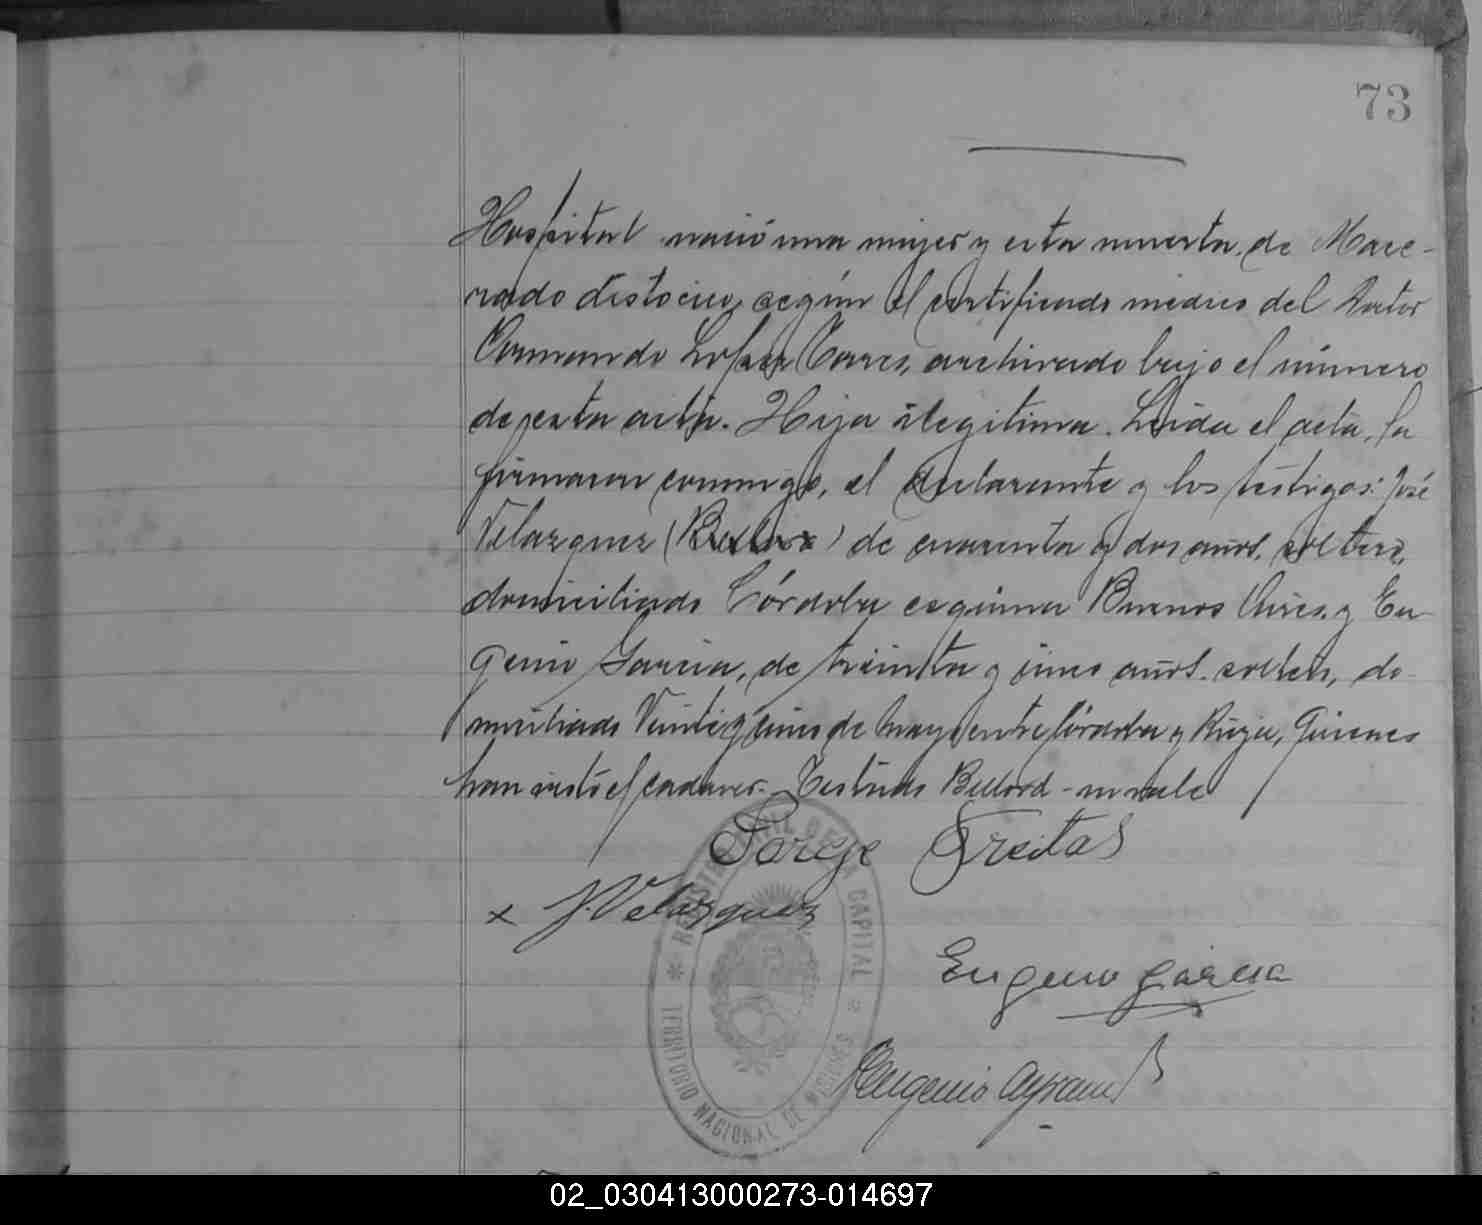 73
Hospital nació una mujer y esta muerta, de Mace-
rado distocico, según el certificado medico del Doctor
Armando López Torres, archivado bajo el número
de esta acta. Hija ilegitima. Leida el acta, la
firmaron conmigo, el declarante y los testigos: José
Velazquez ( ) de cuarenta y dos años, soltero,
domiciliado Córdoba esquina Buenos Aires, y Eu-
genio Garcia, de treinta y cinco años, soltero, do-
miciliado Veinticinco de Mayo entre Córdoba y Rioja, quienes
han visto el cadaver. Testado no vale
Jorge Freitas
x J. Velazquez
Eugenio garcia
Eugenio
REGISTRO CIVIL DE LA CAPITAL
* TERRITORIO NACIONAL DE MISIONES *
02_030413000273-014697